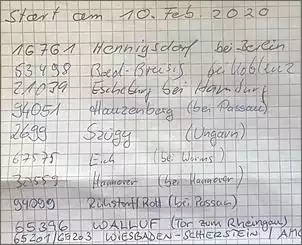 Start am 10. Feb. 2020
16761 Hennigsdorf bei Berlin
53498 Bad-Breisig bei Koblenz
21039 Escheburg bei Hamburg
94051 Hauzenberg (bei Passau)
2699 Szügy (Ungarn)
67575 Eich (bei Worms)
Hannover (bei Hannover)
94099 Ruhstorf/Rott (bei Passau)
65396 WALLUF (Tor zum Rheingau)
65201/65203 WIESBADEN-SCHIERSTEIN